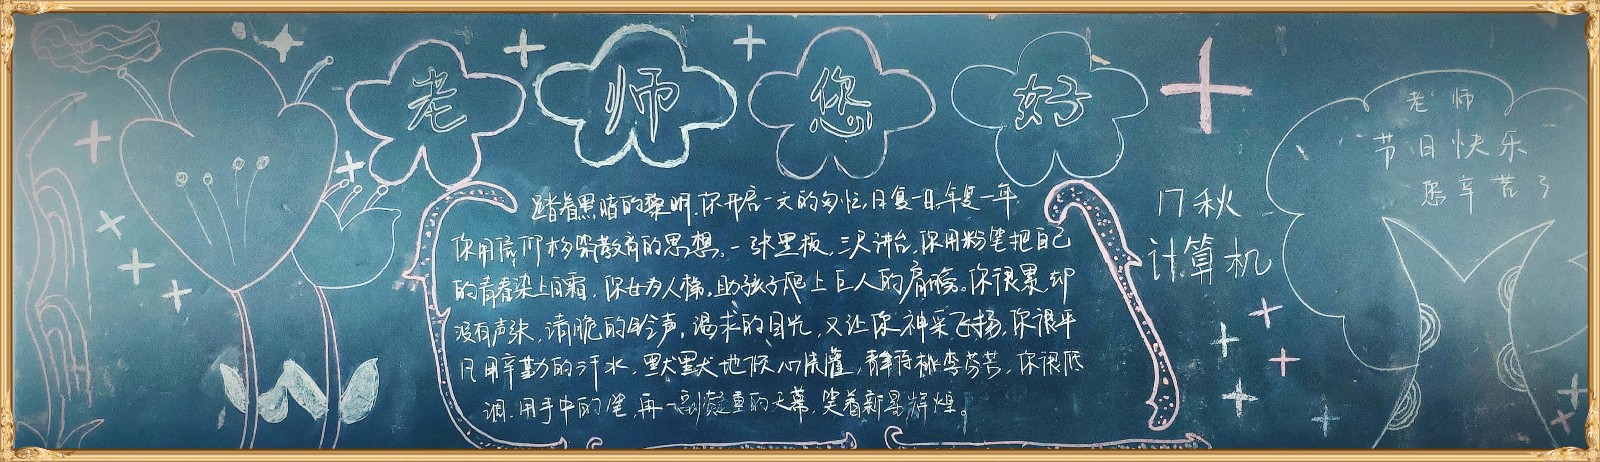 老师您好
踏着黑暗的黎明,你开启一天的匆忙,日复一日,年复一年
你用信仰桥梁教育的思想。一张黑板,三尺讲台,你用粉笔把自己
的青春染上白霜,你甘为人梯,助孩子爬上巨人的肩膀。你很累却
没有声张,清脆的铃声,渴求的目光,又让你神采飞扬,你很平
凡用辛勤的汗水,默默地倾心浇灌,静待桃李芬芳,你很低
调,用手中的笔,再一副凝重的天幕,笑着新星辉煌。
17秋
计算机
老师
节日快乐
您辛苦了